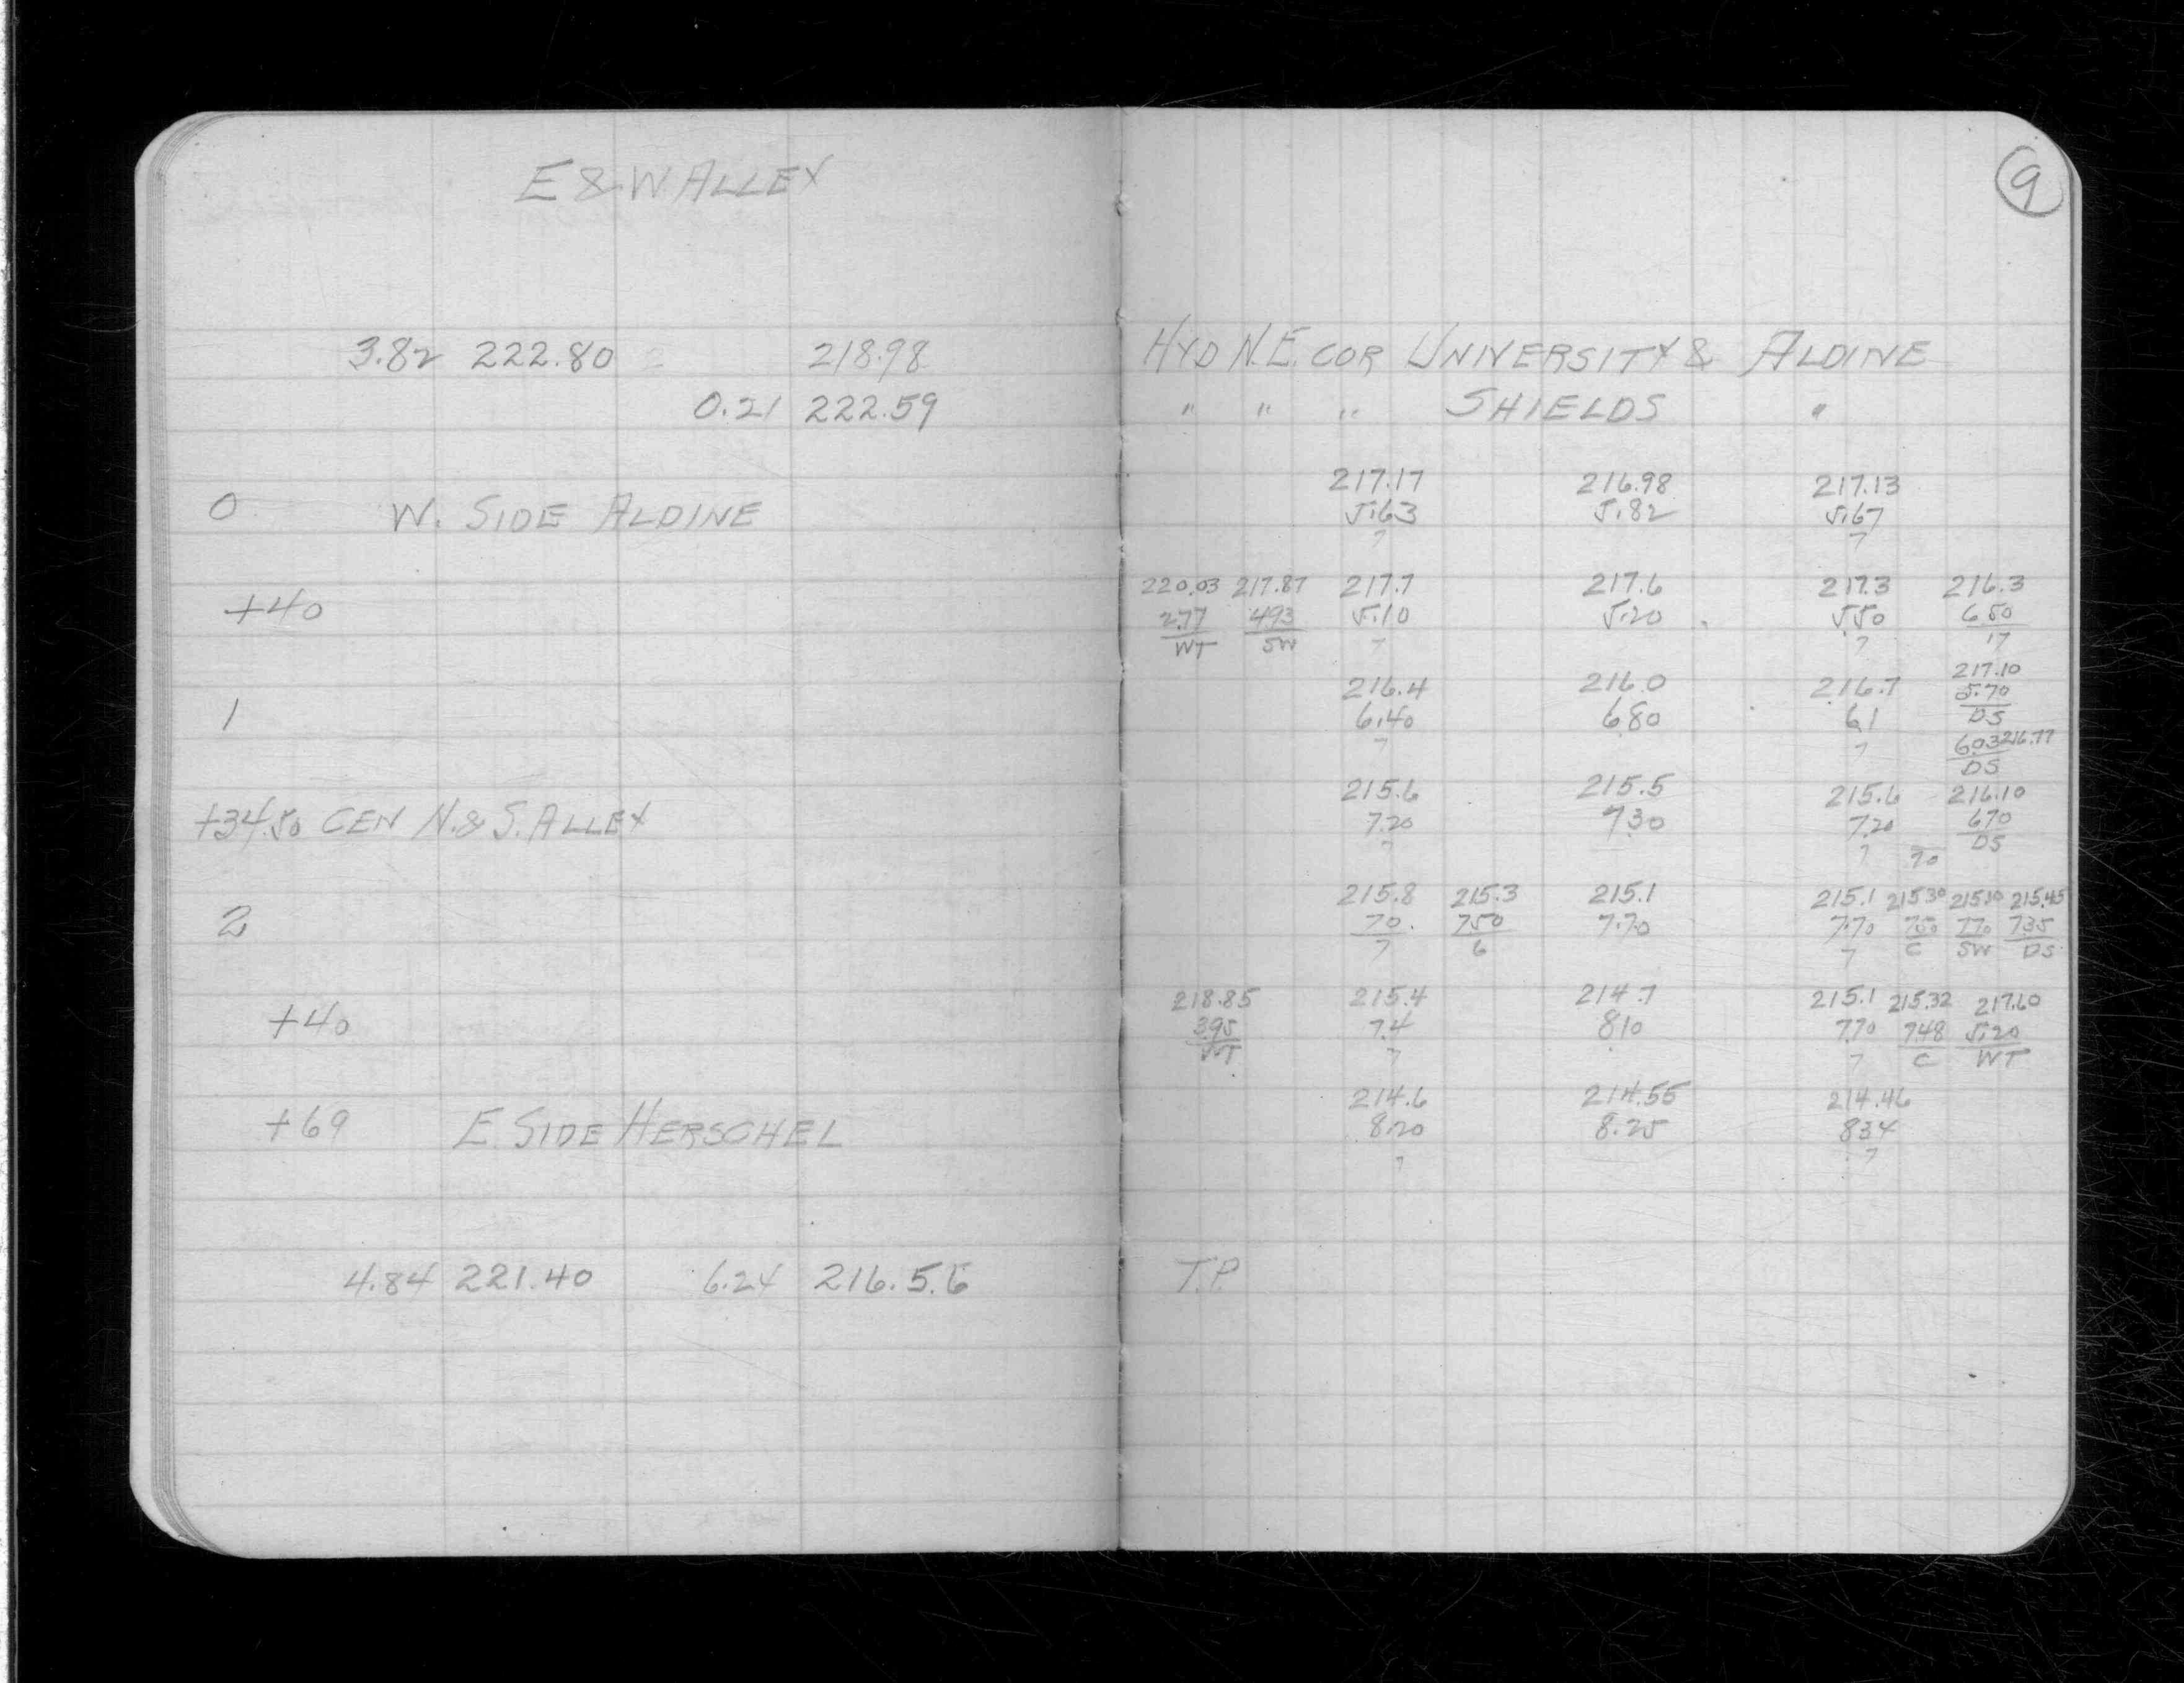 E & W ALLEY
9
3.82 222.80 218.98 HYD N.E. COR UNIVERSITY & ALDINE
0.21 222.59 " " " SHIELDS "
217.17 216.98 217.13
0 W. SIDE ALDINE 5.63 5.82 5.67
7 7
220.03 217.87 217.7 217.6 217.3 216.3
+40 2.77 4.93 5.10 5.20 5.50 6.50
WT SW 7 7 17
217.10
216.4 216.0 216.7 5.70
1 6.40 6.80 6.1 DS
7 7 6.03 216.77
DS
215.6 215.5 215.6 216.10
+34.50 CEN N. & S. ALLEY 7.20 7.30 7.20 6.70
7 7 70 DS
215.8 215.3 215.1 215.1 215.30 215.10 215.45
2 70 7.50 7.70 7.70 7.50 7.70 7.35
7 6 7 C SW DS
218.85 215.4 214.7 215.1 215.32 217.60
+40 3.95 7.4 8.10 7.70 7.48 5.20
WT 7 7 C WT
214.6 214.55 214.46
+69 E. SIDE HERSCHEL 8.20 8.25 8.34
7 7
4.84 221.40 6.24 216.5.6 T.P.